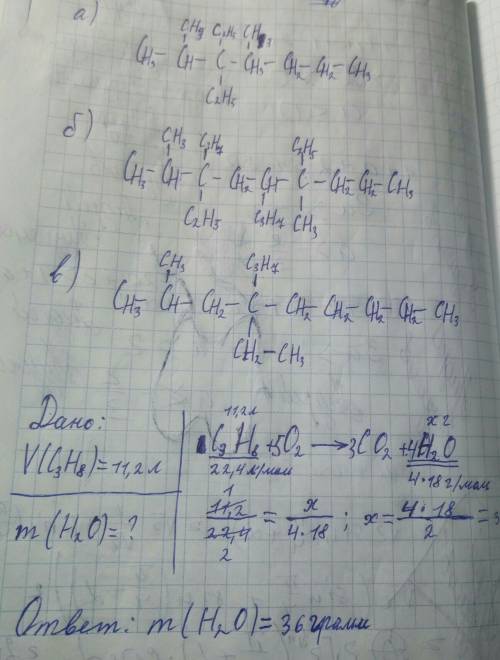 а)
CH3 C2H5 CH3
CH3 – CH – C – CH – CH2 – CH2 – CH3
C2H5
б)
CH3 C3H7 C2H5
CH3 – CH – C – CH2 – CH – C – CH2 – CH2 – CH3
C2H5 C3H7 CH3
в)
CH3 C3H7
CH3 – CH – CH2 – C – CH2 – CH2 – CH2 – CH2 – CH3
CH2 – CH3
Дано:
V(C3H8) = 11,2 л
m(H2O) = ?
11,2 л x г
C3H8 + 5O2 → 3CO2 + 4H2O
22,4 л/моль 4·18 г/моль
1
11,2 / 22,4 = x / 4·18 ; x = 4·18 / 2 = 3
2
Ответ: m(H2O) = 36 грамм